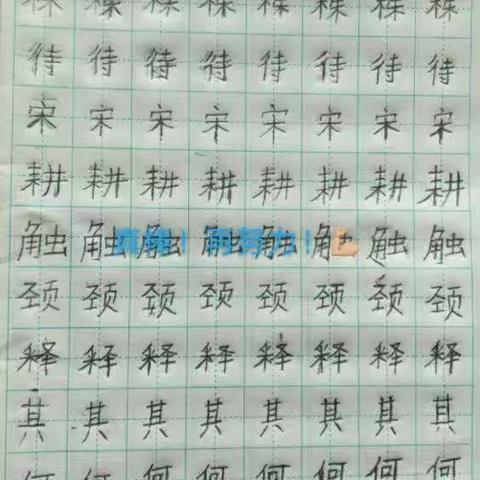 株 株 株 株 株 株 株 株
待 待 待 待 待 待 待 待
宋 宋 宋 宋 宋 宋 宋 宋
耕 耕 耕 耕 耕 耕 耕 耕
触 触 触 触 触 触 触 触
真棒！再努力！💪
颈 颈 颈 颈 颈 颈 颈 颈
释 释 释 释 释 释 释 释
其 其 其 其 其 其 其 其
何 何 何 何 何 何 何 何